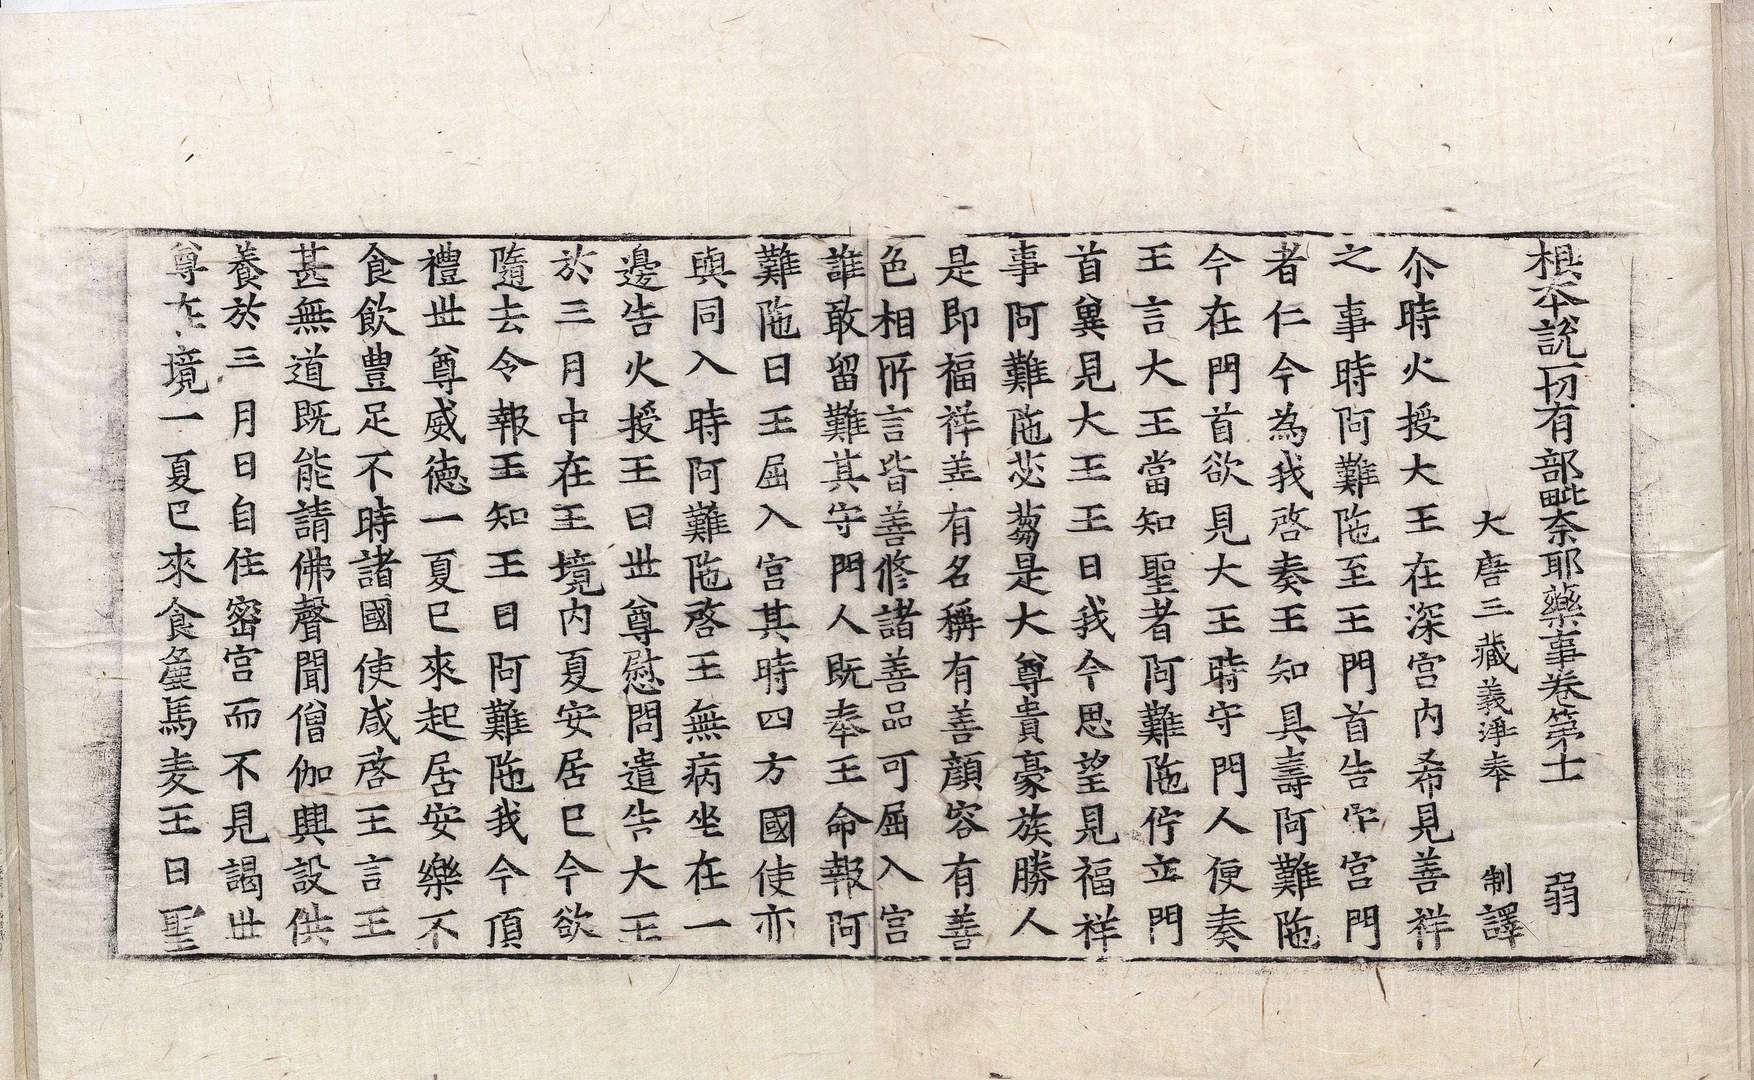 根本說一切有部毗奈耶藥事卷第十一 弱
大唐三藏義淨奉 制譯
尒時火授大王在深宮內希見善祥
之事時阿難陁至王門首告守宮門
者仁今為我啓奏王知具壽阿難陁
今在門首欲見大王時守門人便奏
王言大王當知聖者阿難陁佇立門
首兾見大王王曰我今思望見福祥
事阿難陁苾芻是大尊貴豪族勝人
是即福祥善有名稱有善顔容有善
色相所言皆善修諸善品可屈入宮
誰敢留難其守門人既奉王命報阿
難陁曰王屈入宮其時四方國使亦
與同入時阿難陁啓王無病坐在一
邊告火授王曰世尊慰問遣告大王
於三月中在王境內夏安居已今欲
隨去令報王知王曰阿難陁我今頂
禮世尊威德一夏已來起居安樂不
食飲豊足不時諸國使咸啓王言王
甚無道既能請佛聲聞僧伽興設供
養於三月日自住密宮而不見謁世
尊在境一夏已來食麁馬麦王曰聖